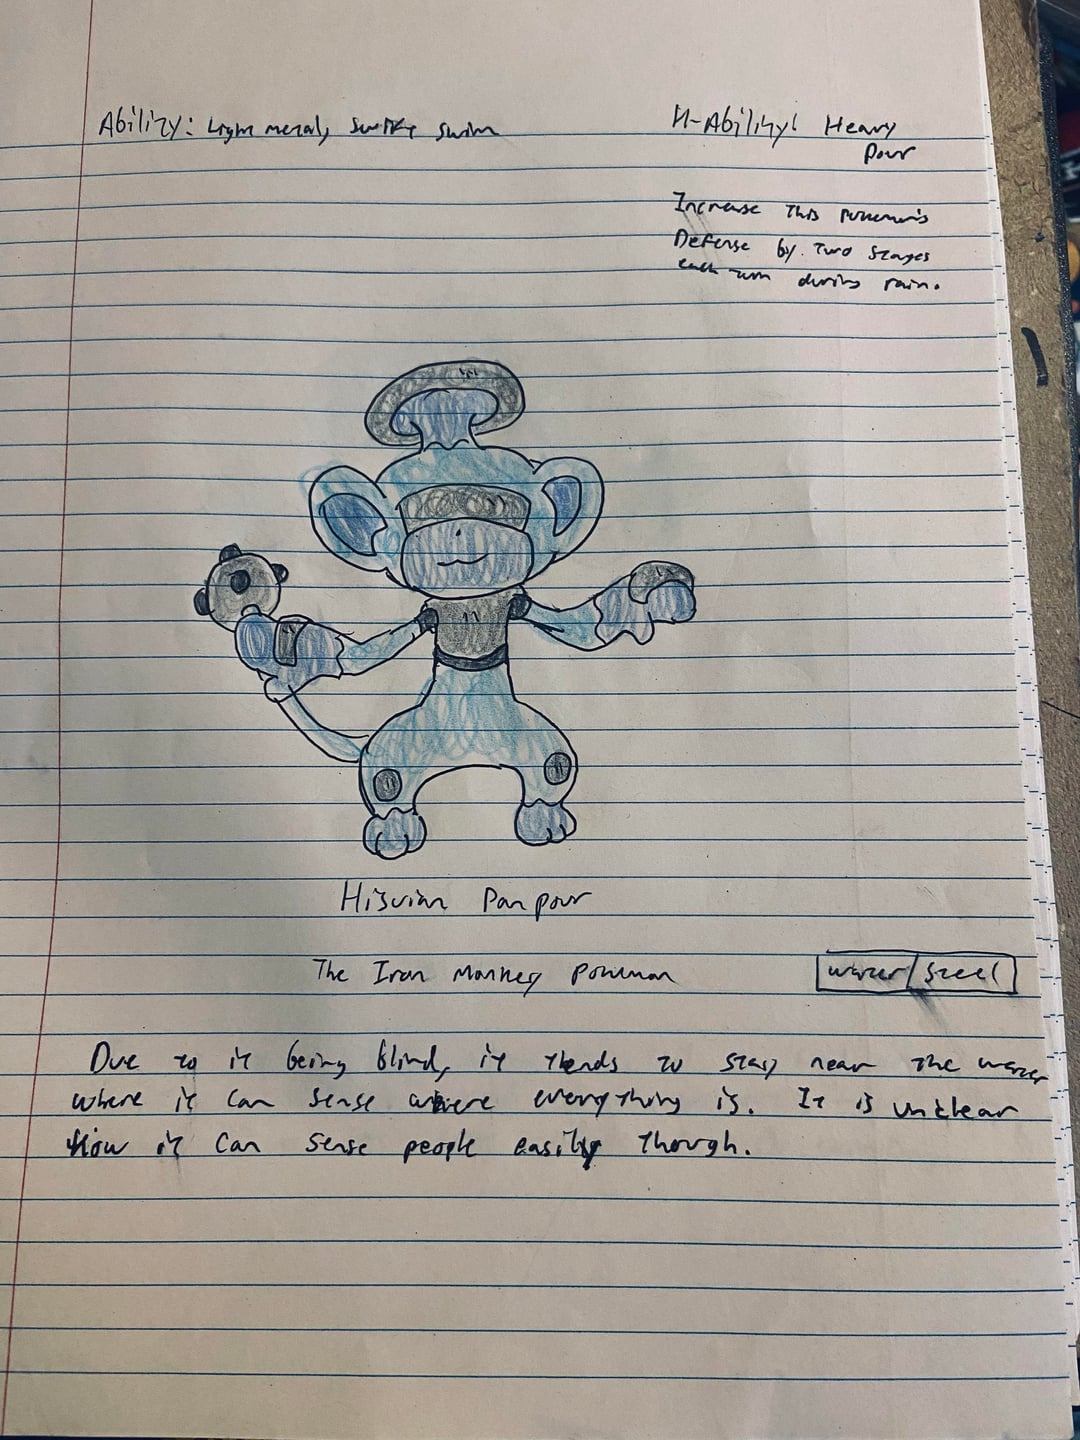 Ability: Light metal, Swift Swim
H-Ability: Heavy
Pour
Increase This Pokemon's
Defense by Two Stages
each turn during rain.
Hisuian Panpour
The Iron Monkey Pokemon
water/Steel
Due to it being blind, it tends to stay near the water
where it can sense where everything is. It is unclear
how it can sense people easily though.